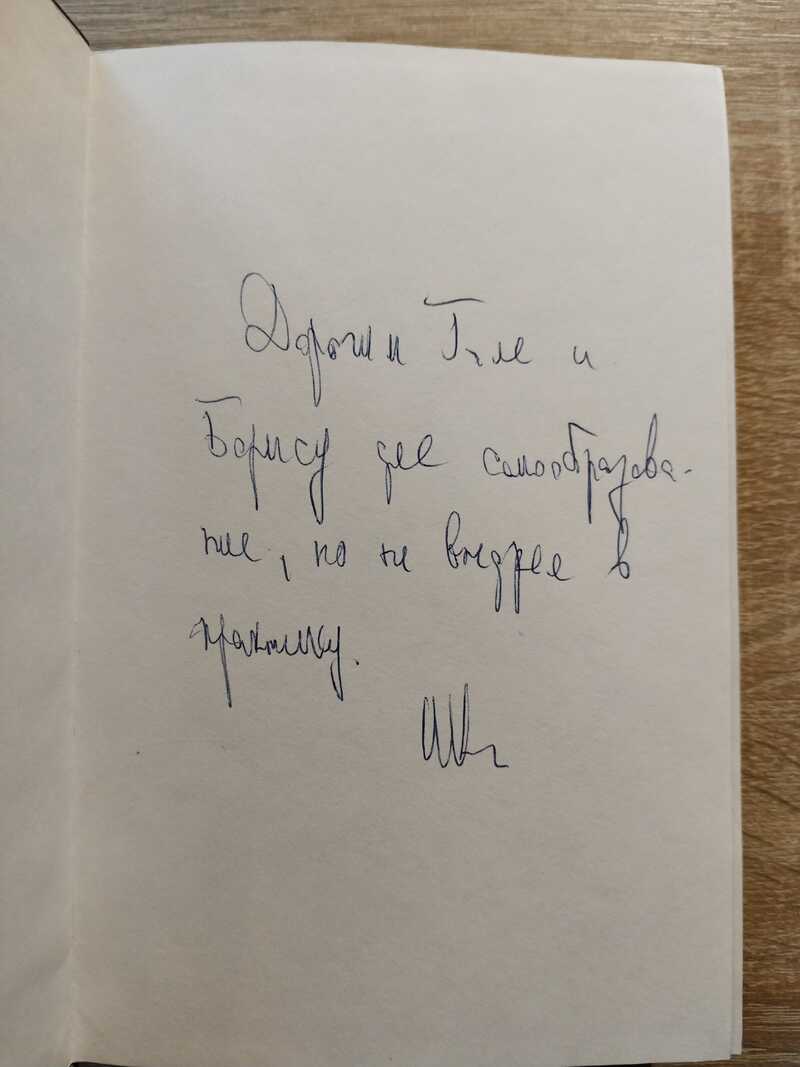 Дорогим Гале и
Борису для самообразова-
ние, но не внедрея в
практику.